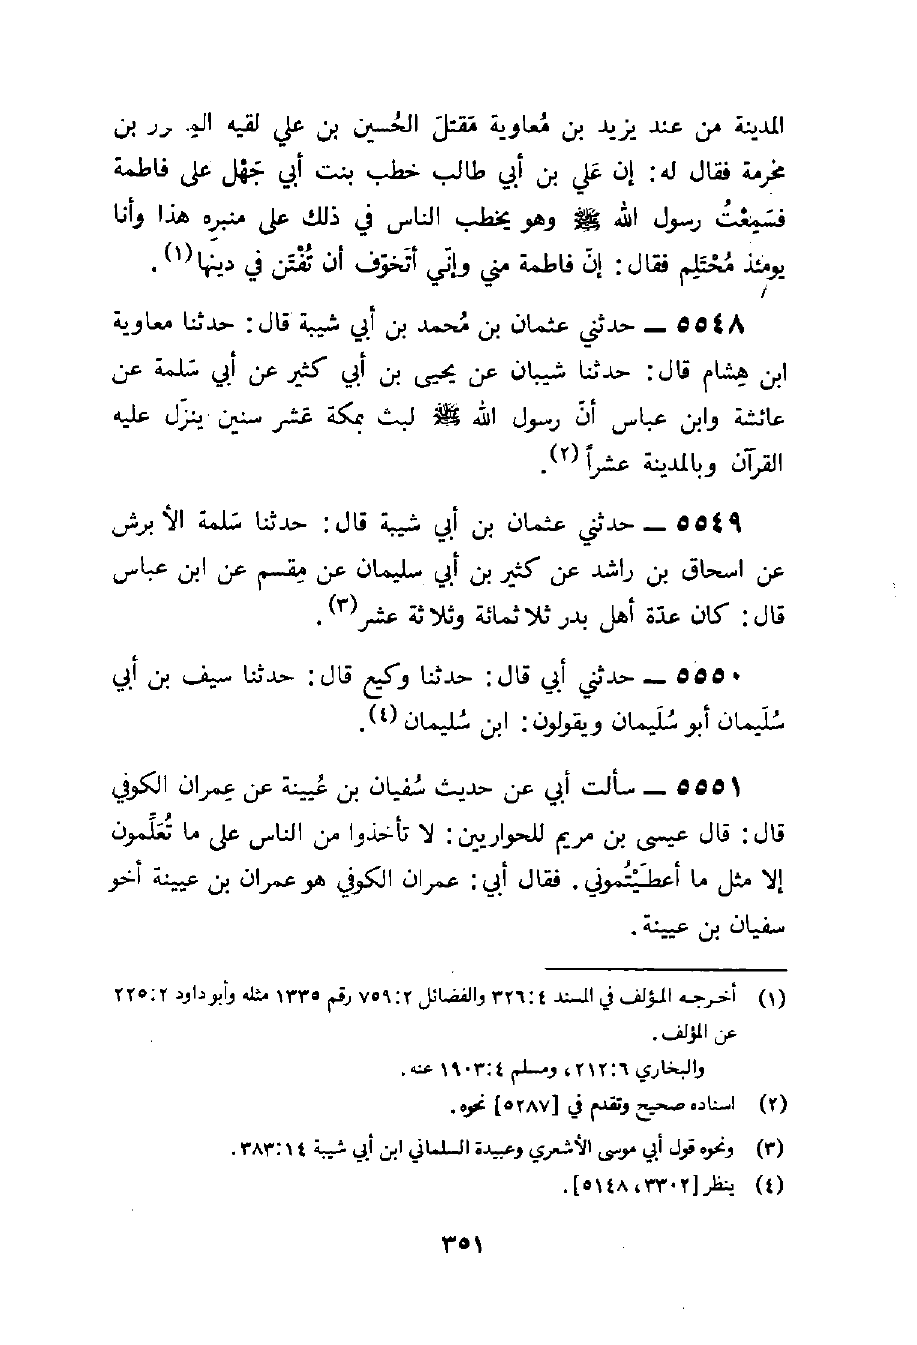 المدينة من عند يزيد بن مُعاوية مَقتلَ الحُسين بن علي لقيه بن
مخرمة فقال له: إن عَلي بن أبي طالب خطب بنت أبي جَهْل على فاطمة
فسَمِعْتُ رسول الله ﷺ وهو يخطب الناس في ذلك على منبره هذا وأنا
يومئذ مُحْتَلِم فقال: إنّ فاطمة مني وإنّي أتَخوّف أن تُفْتَن في دينها(١).
٥٥٤٨ ــ حدثني عثمان بن مُحمد بن أبي شيبة قال: حدثنا معاوية
ابن هِشام قال: حدثنا شيبان عن يحيى بن أبي كثير عن أبي سَلمة عن
عائشة وابن عباس أنّ رسول الله ﷺ لبث بمكة عَشر سنين ينزّل عليه
القرآن وبالمدينة عشراً(٢).
٥٥٤٩ ــ حدثني عثمان بن أبي شيبة قال: حدثنا سَلمة الأبرش
عن اسحاق بن راشد عن كثير بن أبي سليمان عن مِقسم عن ابن عباس
قال: كان عدّة أهل بدر ثلاثمائة وثلاثة عشر(٣).
٥٥٥٠ ــ حدثني أبي قال: حدثنا وكيع قال: حدثنا سيف بن أبي
سُلَيمان أبو سُلَيمان ويقولون: ابن سُليمان(٤).
٥٥٥١ ــ سألت أبي عن حديث سُفيان بن عُيينة عن عِمران الكوفي
قال: قال عيسى بن مريم للحواريين: لا تأخذوا من الناس على ما تُعَلِّمون
إلا مثل ما أعطَيْتُموني. فقال أبي: عمران الكوفي هو عمران بن عيينة أخو
سفيان بن عيينة.
(١) أخرجه المؤلف في المسند ٣٢٦:٤ والفضائل ٧٥٩:٢ رقم ١٣٣٥ مثله وأبو داود ٢٢٥:٢
عن المؤلف.
والبخاري ٢١٢:٦، ومسلم ١٩٠٣:٤ عنه.
(٢) اسناده صحيح وتقدم في [٥٢٨٧] نحوه.
(٣) ونحوه قول أبي موسى الأشعري وعبيدة السلماني ابن أبي شيبة ٣٨٣:١٤.
(٤) ينظر [٣٣٠٢، ٥١٤٨].
٣٥١